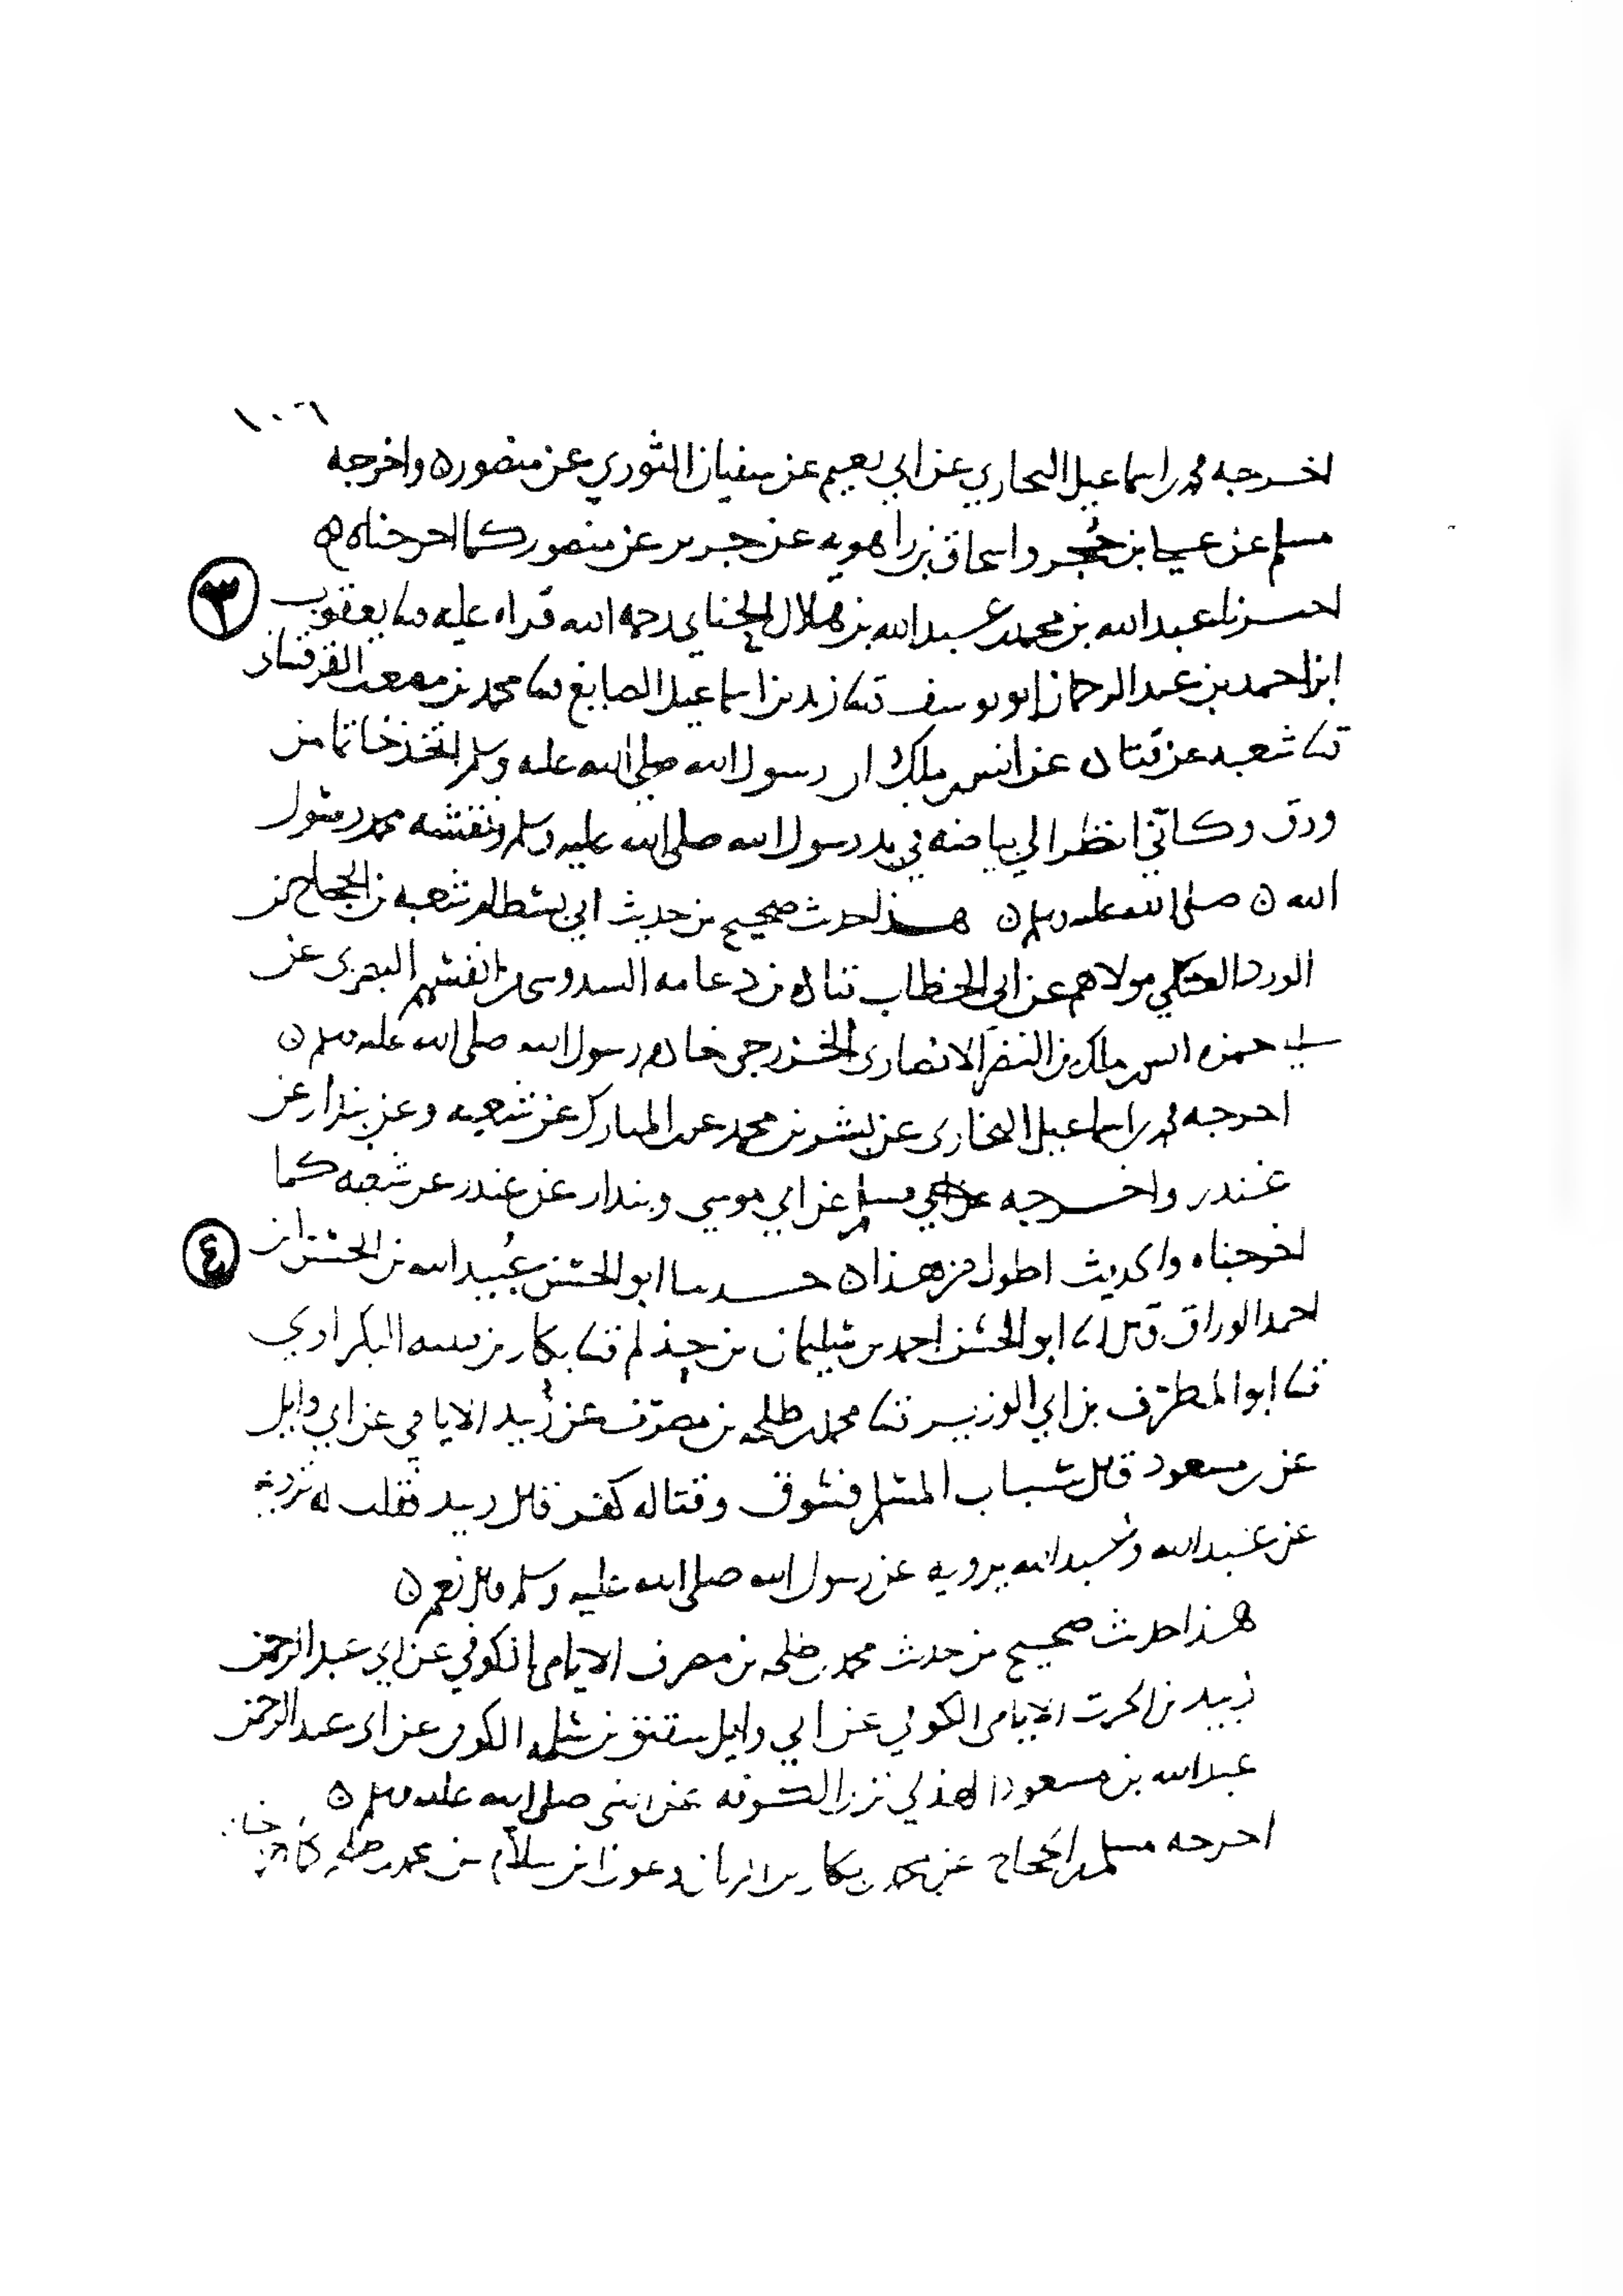 ١٠٦
اخرجه محمد بن اسماعيل البخاري عن ابي نعيم عن سفيان الثوري عن منصور ه واخرجه
مسلم عن علي بن حجر واسحاق بن راهويه عن جرير عن منصور كما اخرجناه ه
٣
اخبرنا عبد الله بن محمد بن عبد الله بن هلال الحنايي رحمه الله قراه عليه ثنا يعقوب
ابن احمد بن عبد الرحمن ابو يوسف ثنا زيد بن اسماعيل الصايغ ثنا محمد بن مصعب القرقساني
ثنا شعبه عن قتاده عن انس بن ملك ان رسول الله صلى الله عليه وسلم اتخذ خاتما من
ورق وكاني انظر الي بياضه في يد رسول الله صلى الله عليه وسلم ونقشه محمد رسول
الله ه صلى الله عليه وسلم ه هذا حديث صحيح من حديث ابي بسطام شعبه بن الحجاج بن
الورد العتكي مولاهم عن ابي الخطاب قتاده بن دعامه السدوسي من انفسهم البصري عن
ابي حمزه انس بن ملك بن النضر الانصاري الخزرجي خادم رسول الله صلى الله عليه وسلم ه
اخرجه محمد بن اسماعيل البخاري عن بشر بن محمد عن المبارك عن شعبه وعن بندار عن
غندر واخرجه مسلم عن ابي موسي وبندار عن غندر عن شعبه كما
٤
اخرجناه والحديث اطول من هذا ه حدثنا ابو الحسن عبيد الله بن الحسن بن
احمد الوراق قال ثنا ابو الحسن احمد بن سليمان بن حذلم ثنا بكار بن قتيبه البكراوي
ثنا ابو المطرف بن ابي الوزير ثنا محمد بن طلحه بن مصرف عن زبيد الايامي عن ابي وايل
عن بن مسعود قال سباب المسلم فسوق وقتاله كفر قال زبيد فقلت له ترويه
عن عبد الله وعبد الله يرويه عن رسول الله صلى الله عليه وسلم قال نعم ه
هذا حديث صحيح من حديث محمد بن طلحه بن مصرف الايامي الكوفي عن ابي عبد الرحمن
زبيد بن الحرث الايامي الكوفي عن ابي وايل شقيق بن سلمه الكوفي عن ابي عبد الرحمن
عبد الله بن مسعود الهذلي نزيل الكوفه عن النبي صلى الله عليه وسلم ه
اخرجه مسلم بن الحجاج عن محمد بن بكار بن الريان وعون بن سلام عن محمد بن طلحه